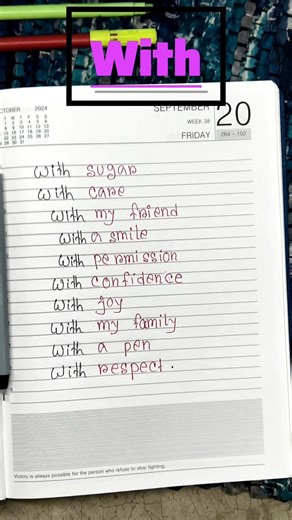 With
OCTOBER 2024
SEPTEMBER
WEEK 38
FRIDAY
20
264 - 102
With sugar
With care
With my friend
With a smile
With permission
With confidence
With joy
With my family
With a pen
With respect.
Victory is always possible for the person who refuse to stop fighting.